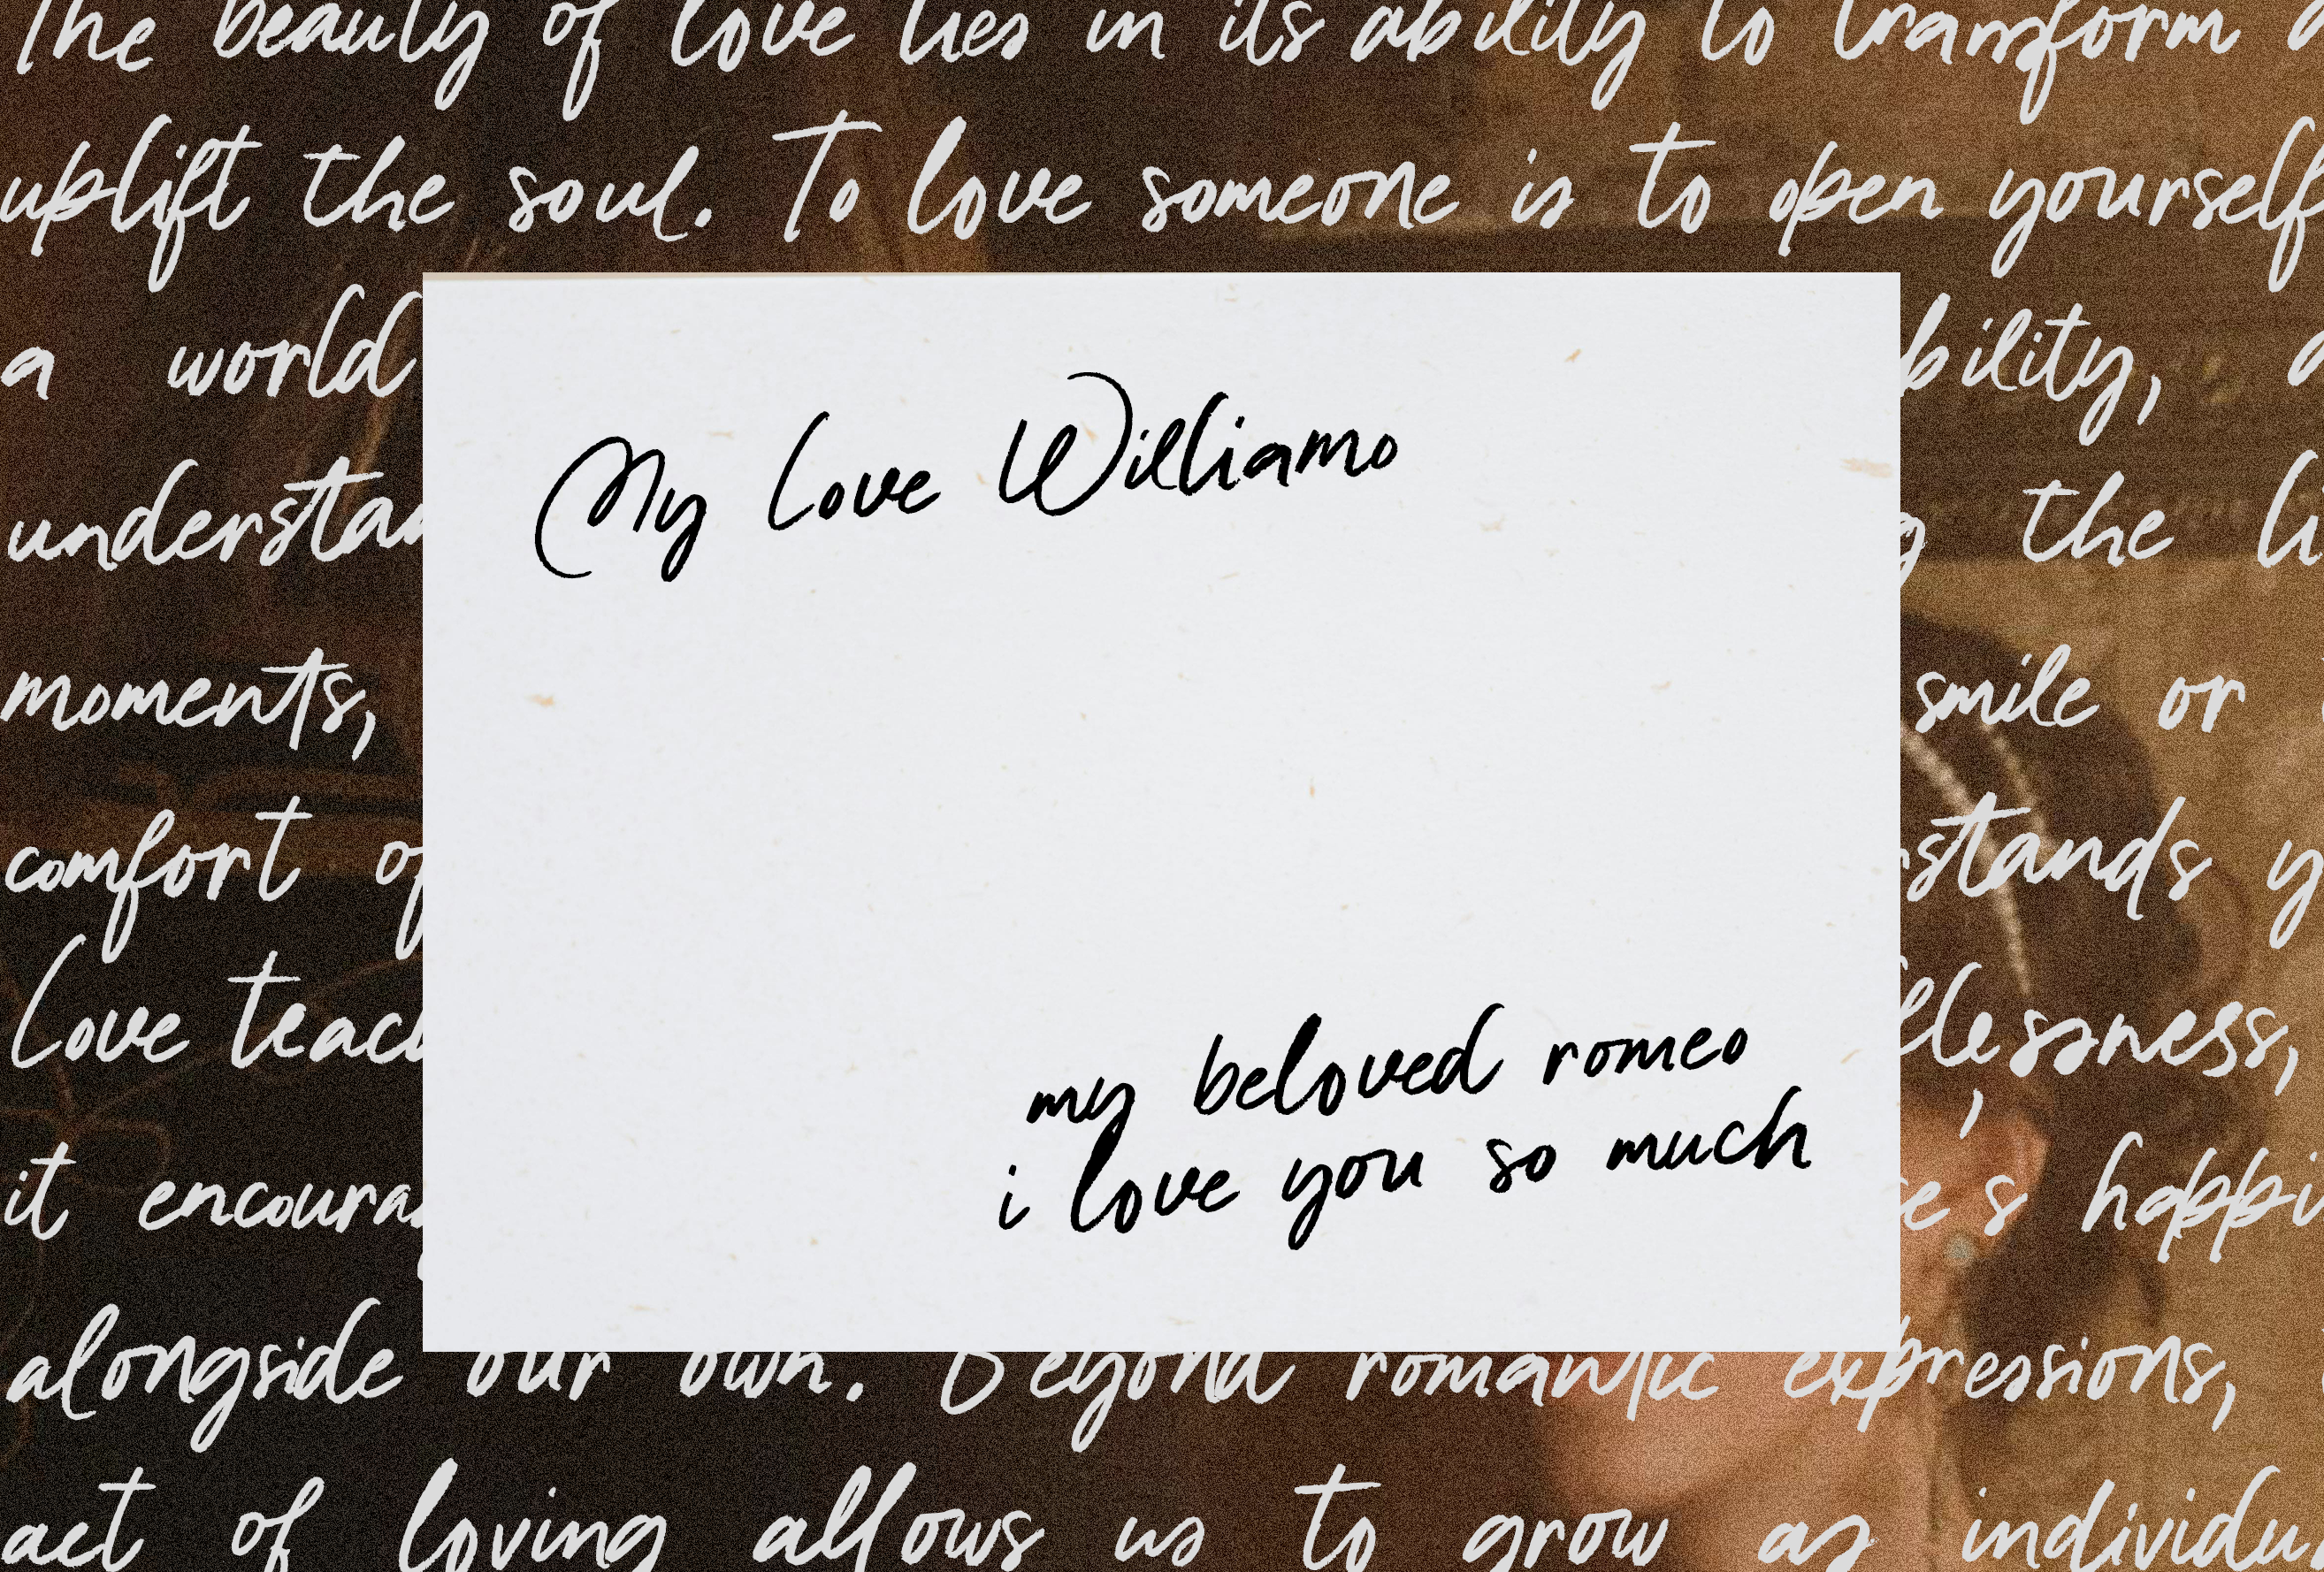 The beauty of love lies in its ability to transform
uplift the soul. To love someone is to open yourself
a world
bility,
My Love Williamo
understan
the
moments,
smile or
comfort of
stands
Love teach
lessness,
my beloved romeo
i love you so much
it encoura
e's happi
alongside our own. Beyond romantic expressions,
act of loving allows us to grow as individu